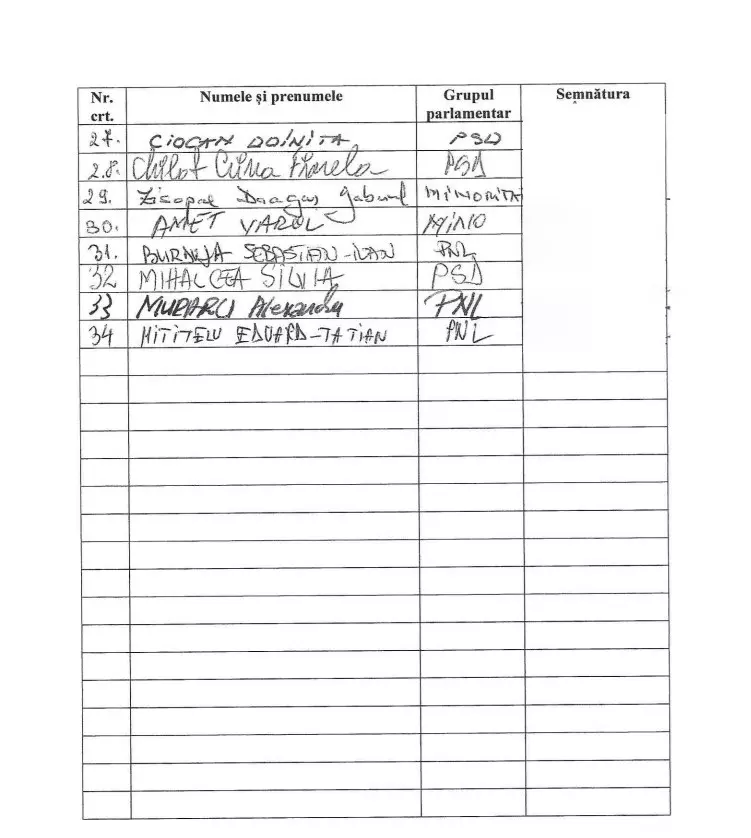 Nr. crt. Numele și prenumele Grupul parlamentar Semnătura
27. CIOCAN DOINITA PSD
28. Florela PSD
29. Zisopol Dragos Gabriel MINORITA
30. AMET VAROL MINO
31. SEBASTIAN-IOAN PNL
32 MIHALCEA SILVIA PSD
33 MURARU Alexandru PNL
34 MITITELU EDUARD-TATIAN PNL